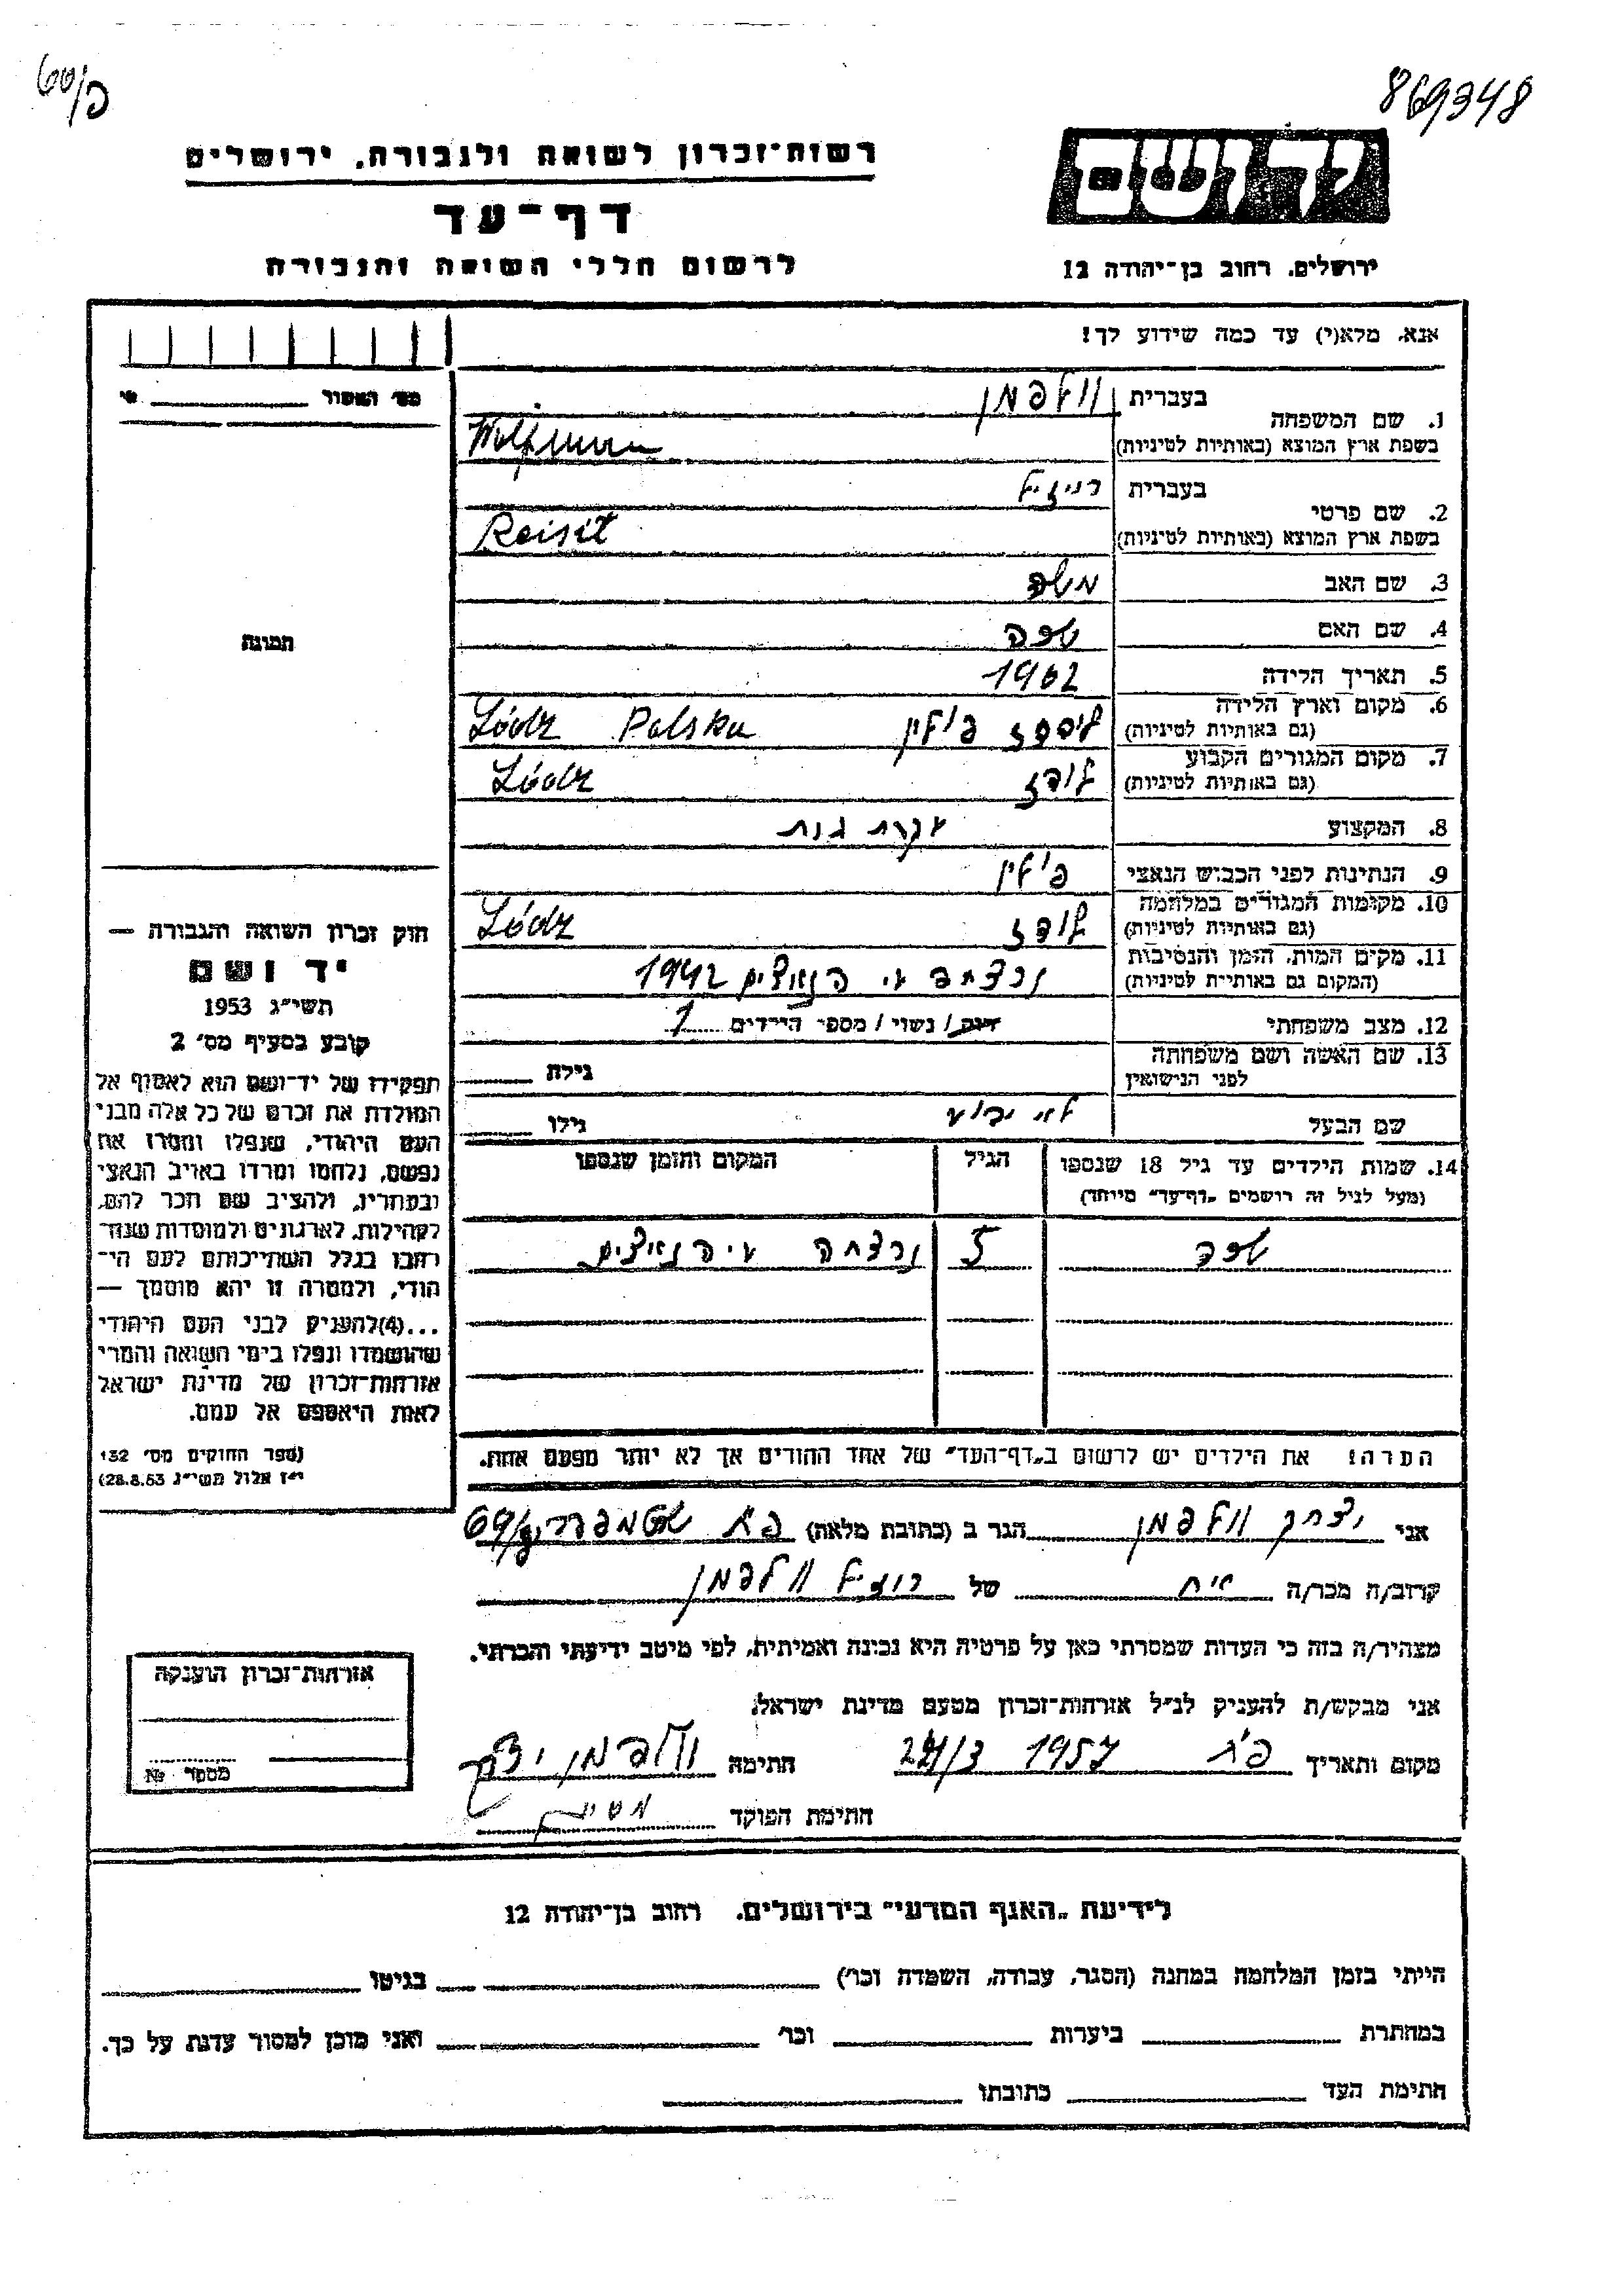 869348
רשות-זכרון לשואה ולגבורה, ירושלים
דף-עד
לרשום חללי השואה והגבורה
ירושלים, רחוב בן-יהודה 12
אנא, מלא(י) עד כמה שידוע לך!
1. שם המשפחה בעברית וולפמן
בשפת ארץ המוצא (באותיות לטיניות) Wolfman
2. שם פרטי בעברית
בשפת ארץ המוצא (באותיות לטיניות) Reisil
3. שם האב משה
4. שם האם
5. תאריך הלידה 1902
6. מקום וארץ הלידה (גם באותיות לטיניות) פולין Łódz Polska
7. מקום המגורים הקבוע (גם באותיות לטיניות) לודז Łódz
8. המקצוע עקרת בית
9. הנתינות לפני הכבוש הנאצי פולין
10. מקומות המגורים במלחמה (גם באותיות לטיניות) לודז Łódz
11. מקום המות, הזמן והנסיבות (המקום גם באותיות לטיניות) נרצחה ע"י הנאצים 1942
12. מצב משפחתי רווק / נשוי / מספר הילדים 1
13. שם האשה ושם משפחתה לפני הנישואין גילה
שם הבעל לא ידוע גילו
14. שמות הילדים עד גיל 18 שנספו הגיל המקום והזמן שנספו
(מעל לגיל זה רושמים "דף-עד" מיוחד)
5 נרצחה ע"י הנאצים
הערה: את הילדים יש לרשום ב"דף-העד" של אחד ההורים אך לא יותר מפעם אחת.
מס' האסור
תמונה
חוק זכרון השואה והגבורה —
יד ושם
תשי"ג 1953
קובע בסעיף מס' 2
תפקידו של יד-ושם הוא לאסוף אל
המולדת את זכרם של כל אלה מבני
העם היהודי, שנפלו ומסרו את
נפשם, נלחמו ומרדו באויב הנאצי
ובעוזריו, ולהציב שם וזכר להם,
לקהילות, לארגונים ולמוסדות שנח-
רבו בגלל השתייכותם לעם הי-
הודי, ולמטרה זו יהא מוסמך —
...(4)להעניק לבני העם היהודי
שהושמדו ונפלו בימי השואה והמרי
אזרחות-זכרון של מדינת ישראל
לאות היאספם אל עמם.
(ספר החוקים מס' 132
י"ז אלול תשי"ג 28.8.53)
אני יצחק וולפמן הגר ב (כתובת מלאה)
קרוב/ה מכר/ה אח של וולפמן
מצהיר/ה בזה כי העדות שמסרתי כאן על פרטיה היא נכונה ואמיתית, לפי מיטב ידיעתי והכרתי.
אני מבקש/ת להעניק לנ"ל אזרחות-זכרון מטעם מדינת ישראל.
מקום ותאריך 1957 חתימה וולפמן יצחק
חתימת הפוקד
אזרחות-זכרון הוענקה
מספר №
לידיעת "האגף המדעי" בירושלים, רחוב בן-יהודה 12
הייתי בזמן המלחמה במחנה (הסגר, עבודה, השמדה וכו') בגיטו
במחתרת ביערות וכו' ואני מוכן למסור עדות על כך.
חתימת העד כתובתו